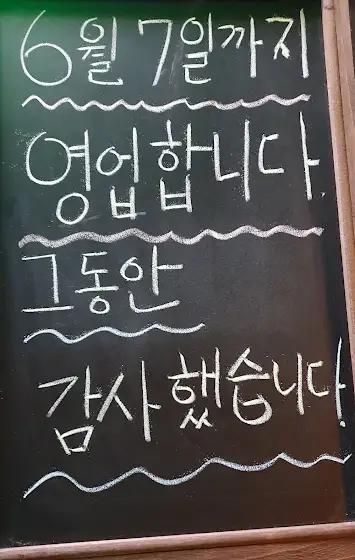 6월 7일까지
영업합니다.
그동안
감사했습니다.